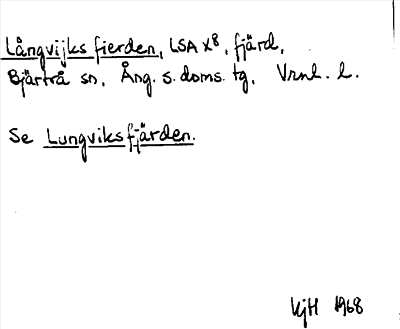 Långvijks fierden, LSA X8, fjärd,
Bjärtrå sn, Ång. s. doms. tg, Vrnl. l.
Se Lungviksfjärden.
KjH 1968